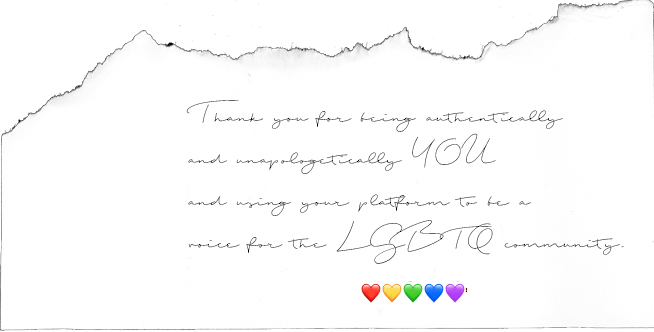 Thank you for being authentically
and unapologetically YOU
and using your platform to be a
voice for the LGBTQ community.
❤️💛💚💙💜